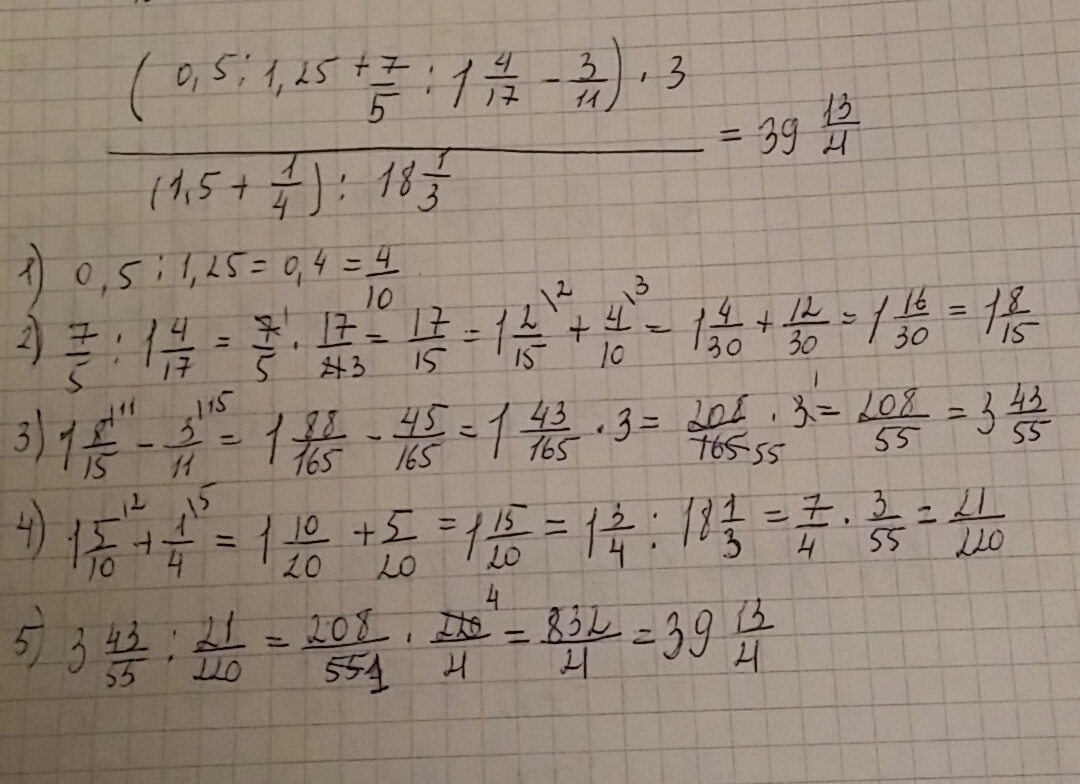 (0,5 : 1,25 + 7/5 : 1 4/17 - 3/11) · 3
= 39 13/21
(1,5 + 1/4) : 18 1/3
1) 0,5 : 1,25 = 0,4 = 4/10
2) 7/5 : 1 4/17 = 7/5 · 17/21 3 = 17/15 = 1 2/15 \2 + 4/10 \3 = 1 4/30 + 12/30 = 1 16/30 = 1 8/15
3) 1 8/15 \11 - 3/11 \15 = 1 88/165 - 45/165 = 1 43/165 · 3 = 208/165 55 · 3 1 = 208/55 = 3 43/55
4) 1 5/10 \2 + 1/4 \5 = 1 10/20 + 5/20 = 1 15/20 = 1 3/4 : 18 1/3 = 7/4 · 3/55 = 21/220
5) 3 43/55 : 21/220 = 208/55 1 · 220 4/21 = 832/21 = 39 13/21